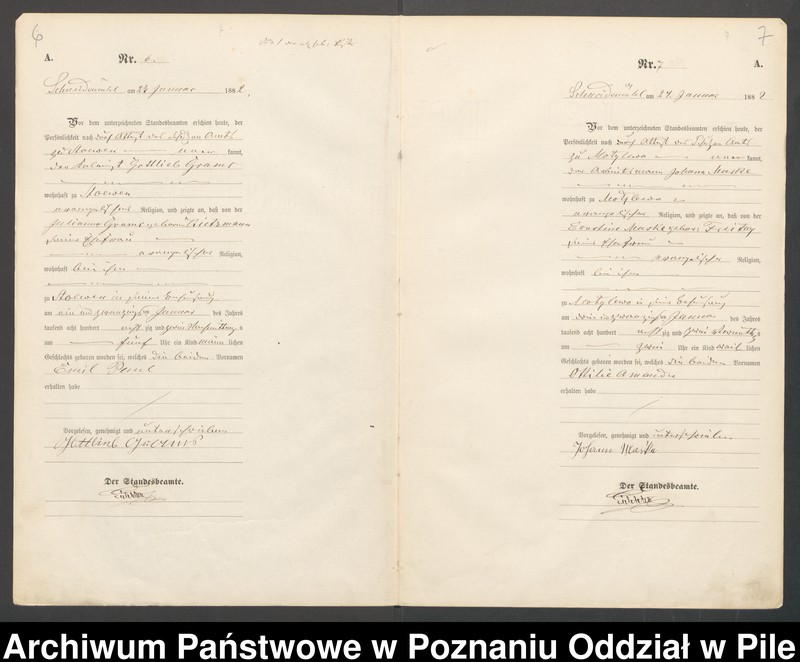 6
A.
Nr. 6.
Schneidemühl am 24 Januar 1882,
Vor dem unterzeichneten Standesbeamten erschien heute, der
Persönlichkeit nach durch Attest des Schulzen Amts
zu Stoewen kannt,
Gottlieb Grams
wohnhaft zu Stoewen
evangelischer Religion, und zeigte an, daß von der
Julianna Grams geborne
seine Ehefrau
evangelischer Religion,
wohnhaft bei ihm
zu Stoewen in seiner Behausung
am ein und zwanzigsten Januar des Jahres
tausend acht hundert achtzig und zwei Vormittags
um fünf Uhr ein Kind männlichen
Geschlechts geboren worden sei, welches die beiden Vornamen
Emil Paul
erhalten habe
Vorgelesen, genehmigt und unterschrieben
Gottlieb Grams
Der Standesbeamte.
7
Nr. 7
A.
Schneidemühl am 24. Januar 1882
Vor dem unterzeichneten Standesbeamten erschien heute, der
Persönlichkeit nach durch Attest des Schulzen Amts
zu Motylewo kannt,
der Arbeitsmann Johann Maske
wohnhaft zu Motylewo
evangelischer Religion, und zeigte an, daß von der
Maske geborne Freitag
seine Ehefrau
evangelischer Religion,
wohnhaft bei ihm
zu Motylewo in seiner Behausung
am drei und zwanzigsten Januar des Jahres
tausend acht hundert achtzig und zwei Vormittags
um zwei Uhr ein Kind weiblichen
Geschlechts geboren worden sei, welches die beiden Vornamen
Ottilie Amanda
erhalten habe
Vorgelesen, genehmigt und unterschrieben
Johann Maske
Der Standesbeamte.
Archiwum Państwowe w Poznaniu Oddział w Pile